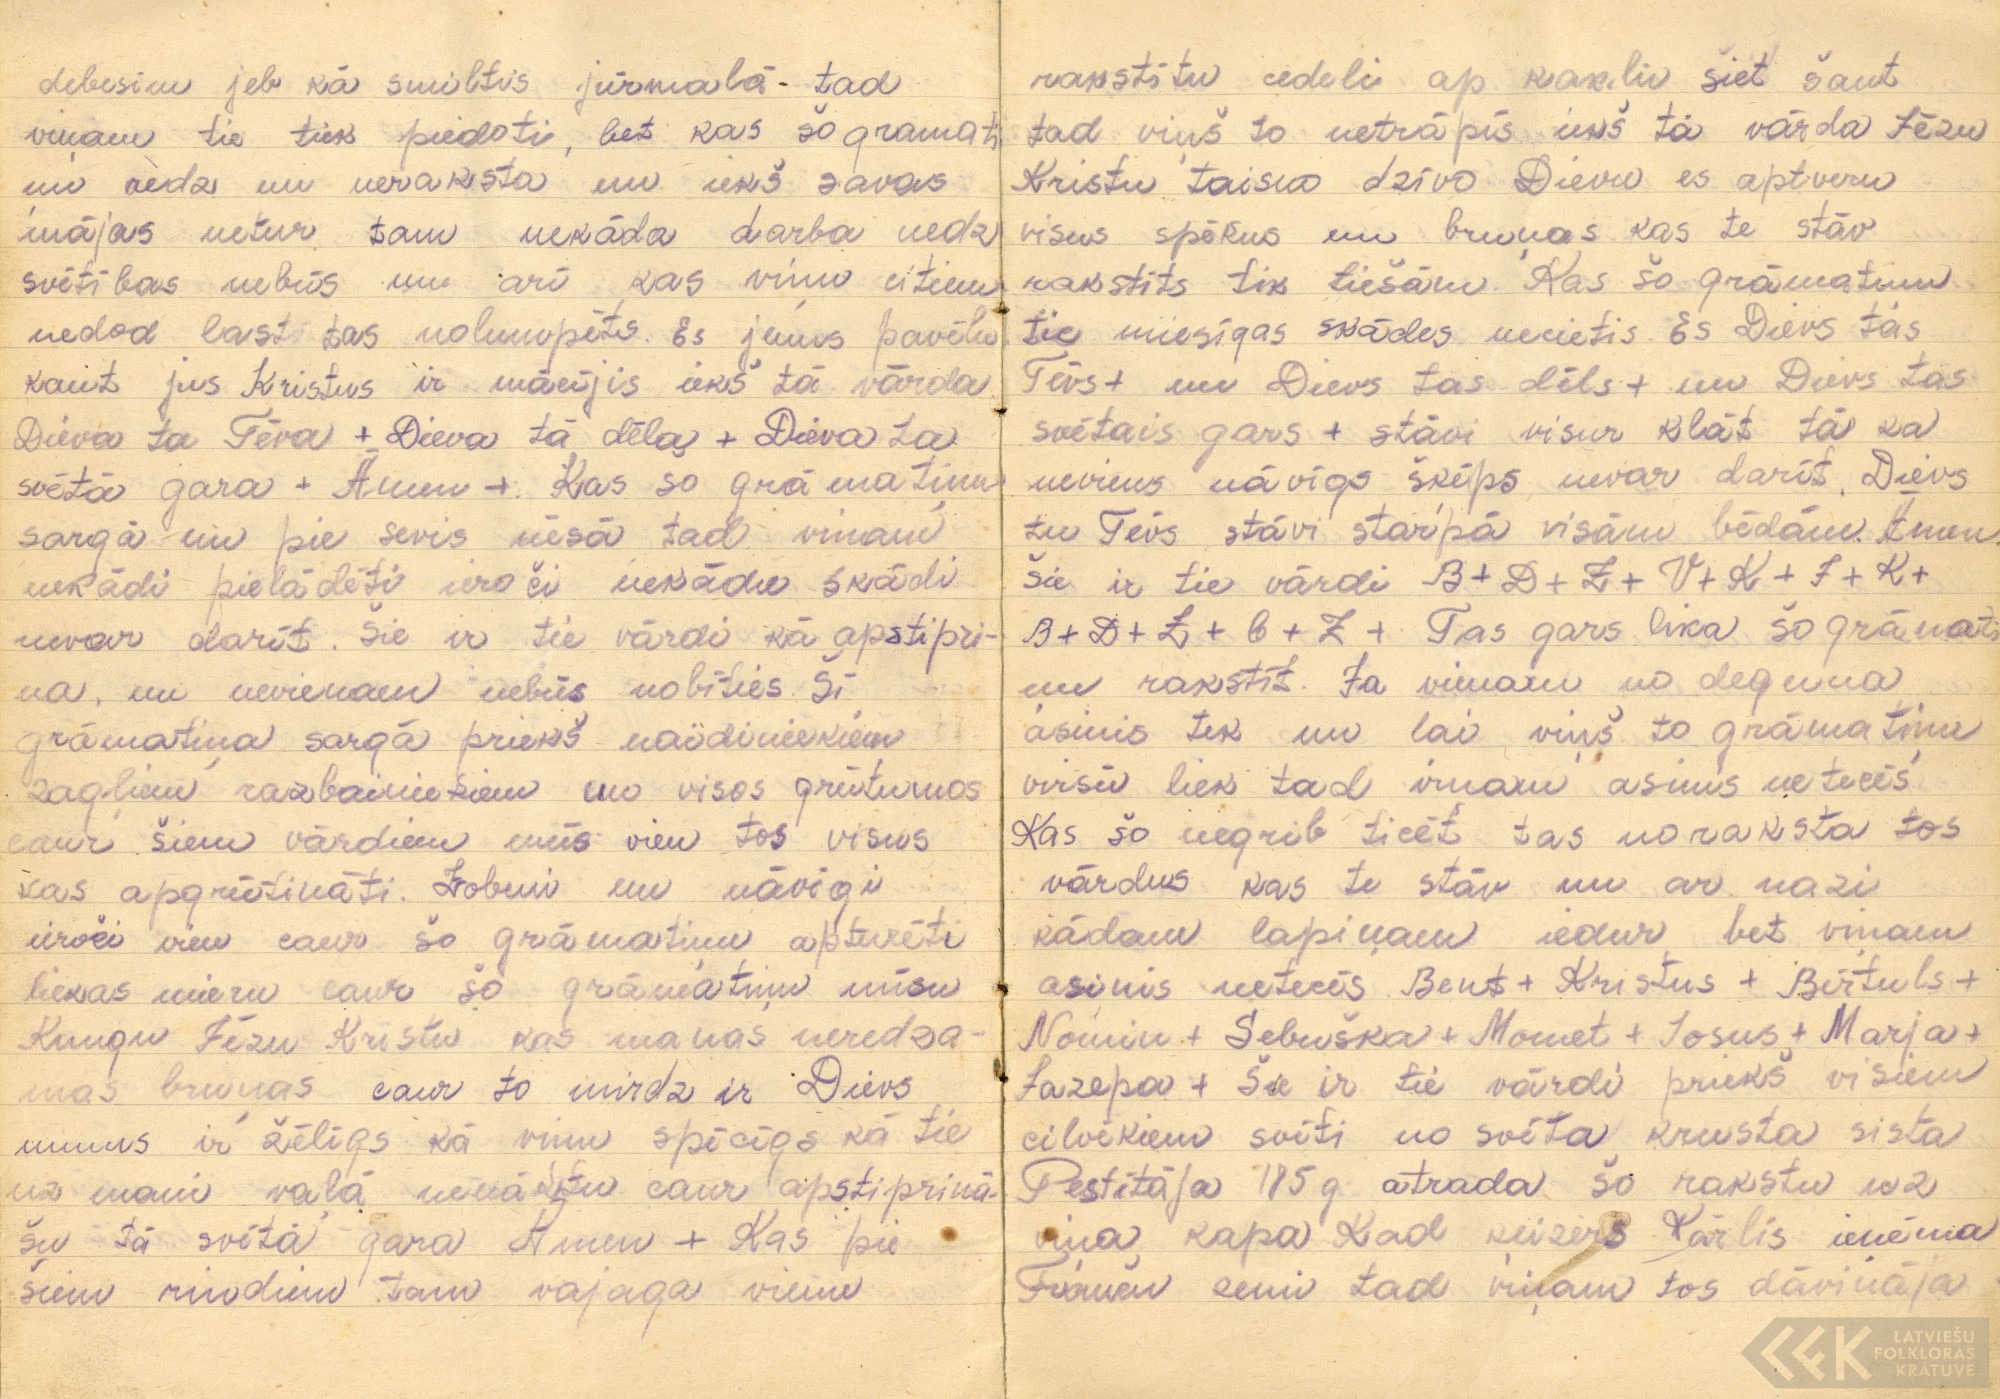 debesīm jeb kā smiltis jūrmalā - tad
viņam tie tiek piedoti, bet kas šo gramati
ņu redz un neraksta un iekš savas
mājas netur tam nekāda darba nedz
svētības nebūs un arī kas viņu citiem
nedod last tas nolumpēts. Es jums pavēlu
kaut jus Kristus ir mācijis iekš tā vārda
Dieva ta Tēva + Dieva tā dēla + Dieva ta
svētā gara + Āmen +. Kas so grāmatiņu
sargā un pie sevis nēsā tad viņam
nekādi pielādēti ieroči nekādu skādi
nevar darīt. Šie ir tie vārdi kā apstipri-
na, un nevienam nebūs nobīties. Šī
grāmatiņa sargā priekš naidiniekiem
zagļiem, razbainiekiem un visos grūtumos
caur šiem vārdiem mūs vien tos visus
kas apgrūtināti. Zobeni un nāvīgi
ieroči vien caur šo grāmatiņu apturēti
liekas mieru caur šo grāmatiņu mūsu
Kungu Jēzu Kristu kas manas neredza-
mas bruņas caur to mirdz ir Dievs
mums ir žēlīgs kā viņu spēcīgs kā tie
uz mani vaļā caur apstiprinā-
šu tā svētā gara Amen + Kas pie
šiem rindiem tam vajaga vienu
rakstītu cedeli ap kaklu siet šaut
tad viņš to netrāpīs iekš tā vārda Jēzu
Kristu taisno dzīvo Dievu es aptveru
visus spēkus un bruņas kas te stāv
rakstīts tik tiešām. Kas šo grāmatiņu
tic miesīgas skādes necietīs. Es Dievs tās
Tēvs + un Dievs tas dēls + un Dievs tas
svētais gars + stāvi visur klāt tā ka
neviens nāvīgs šķēps nevar darīt. Dievs
tu Tēvs stāvi starpā visām bēdām. Āmen.
Šie ir tie vārdi B + D + Z + V + K + J + K +
B + D + Z + b + Z + Tas gars lika šo grāmati
ņu rakstīt. Ja vienam no deguna
asinis tek un lai viņš to grāmatiņu
virsū liek tad viņam asinis netecēs
Kas šo negrib ticēt tas noraksta tos
vārdus kas te stāv un ar nazi
kādam lapiņam iedur bet viņam
asinis netecēs Bent + Kristus + Bērtuls +
Nomin + Sebuška + Momet + Josus + Marja +
Jazepa + Šie ir tie vārdi priekš visiem
cilvēkiem svēti no svēta krusta sista
Pestītāja 185 g atrada šo rakstu uz
viņa kapa Kad keizers Kārlis ieņēma
zemi tad viņam tos dāvināja
LATVIEŠU
FOLKLORAS
KRĀTUVE